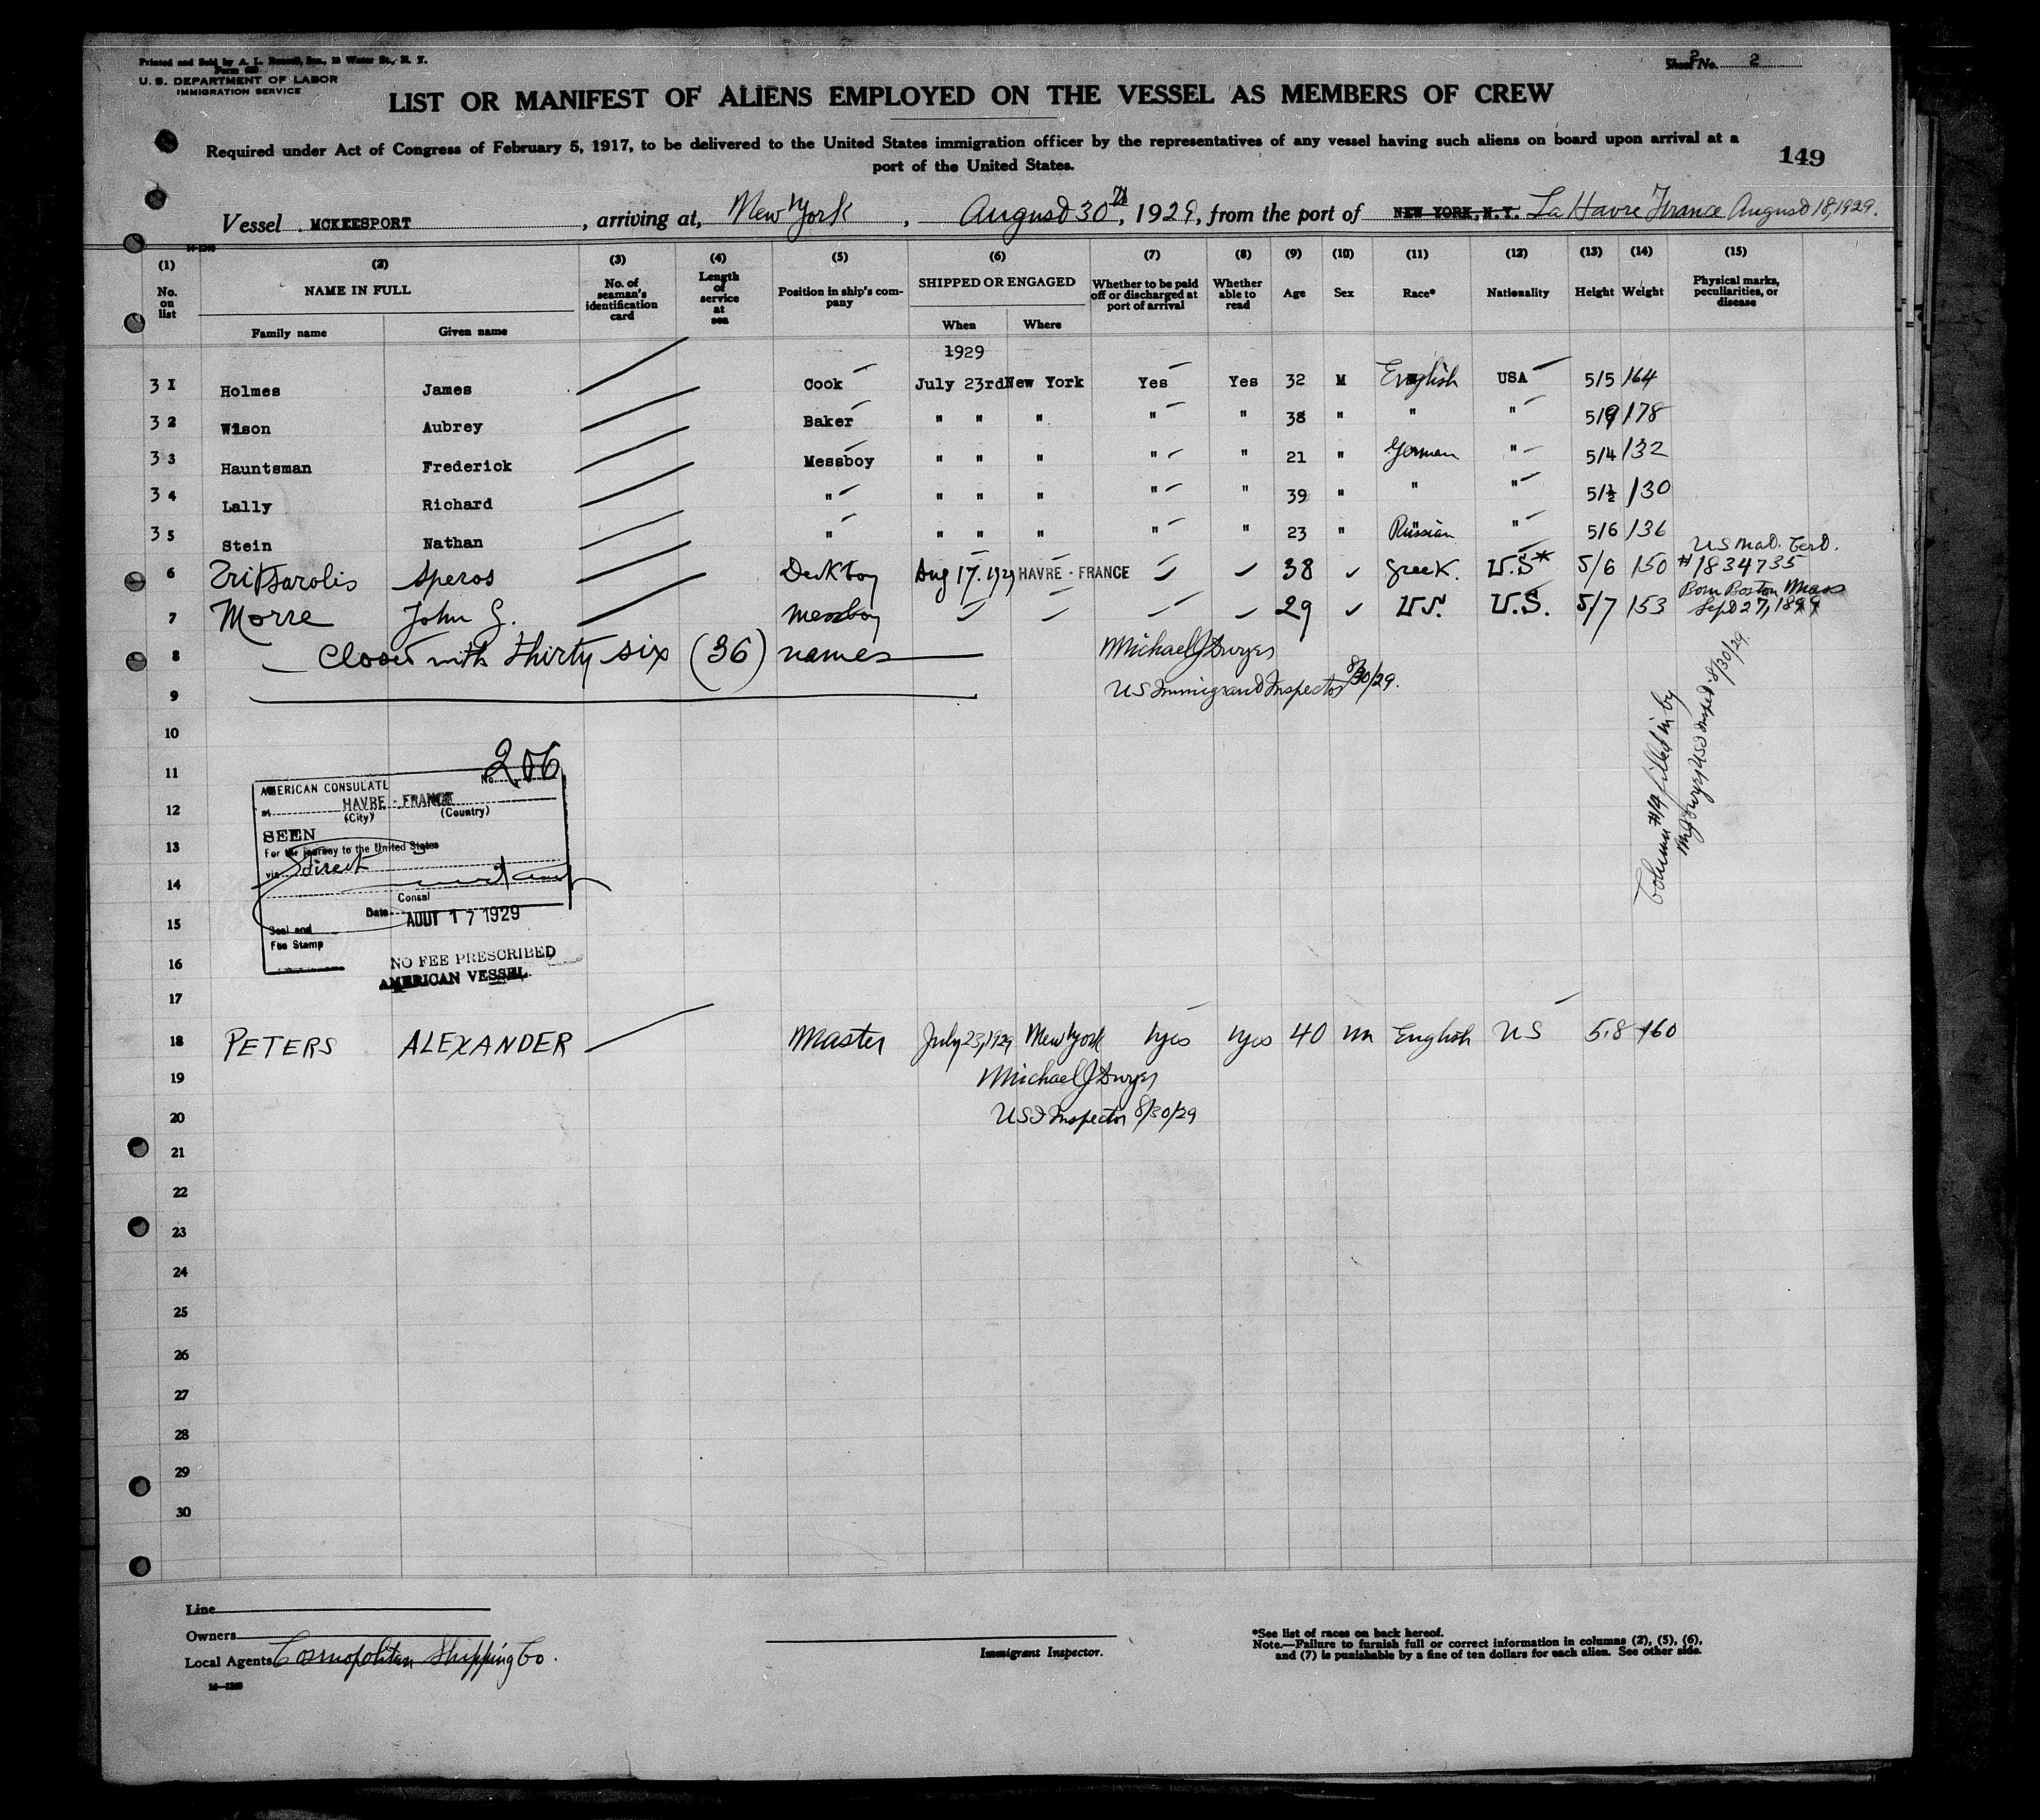 Printed and Sold by A. L. Russell, Inc., 10 Water St., N. Y.
Form 689
U. S. DEPARTMENT OF LABOR
IMMIGRATION SERVICE
2
Sheet No. 2
LIST OR MANIFEST OF ALIENS EMPLOYED ON THE VESSEL AS MEMBERS OF CREW
Required under Act of Congress of February 5, 1917, to be delivered to the United States immigration officer by the representatives of any vessel having such aliens on board upon arrival at a
port of the United States.
149
Vessel MCKEESPORT, arriving at, New York, August 30th, 1929, from the port of NEW YORK, N.Y. La Havre France August 18, 1929.
(1) (2) (3) (4) (5) (6) (7) (8) (9) (10) (11) (12) (13) (14) (15)
No. on list NAME IN FULL No. of seaman's identification card Length of service at sea Position in ship's company SHIPPED OR ENGAGED Whether to be paid off or discharged at port of arrival Whether able to read Age Sex Race* Nationality Height Weight Physical marks, peculiarities, or disease
Family name Given name When Where
1929
3 1 Holmes James Cook July 23rd New York Yes Yes 32 M English USA 5/5 164
3 2 Wilson Aubrey Baker " " " " " 38 " " " 5/9 178
3 3 Hauntsman Frederick Messboy " " " " " 21 " German " 5/4 132
3 4 Lally Richard " " " " " " 39 " " " 5/½ 130
3 5 Stein Nathan " " " " " " 23 " Russian " 5/6 136
6 Speros Deck boy Aug 17. 1929 HAVRE - FRANCE 38 Greek. U.S* 5/6 150 US Nat. Cert. #1834735
7 Morre John G. messboy 29 U.S. U.S. 5/7 153 Born Boston Mass Sept 27, 1899
8 Closed with thirty six (36) names Michael J Dwyer
9 US Immigrant Inspector 8/30/29.
Column #14 filled in by
MJ Dwyer USI Inspt 8/30/29
10
11
12
13
14
15
16
17
No. 206
AMERICAN CONSULATE
at HAVRE - FRANCE
(City) (Country)
SEEN
For the journey to the United States
via direct
Consul
Date AOUT 17 1929
Seal and
Fee Stamp
NO FEE PRESCRIBED
AMERICAN VESSEL
18 PETERS ALEXANDER Master July 23, 1929 New York Yes Yes 40 M English US 5.8 160
19 Michael J Dwyer
20 USI Inspector 8/30/29
21
22
23
24
25
26
27
28
29
30
Line
Owners
Local Agents Cosmopolitan Shipping Co.
Immigrant Inspector.
*See list of races on back hereof.
Note.—Failure to furnish full or correct information in columns (2), (5), (6),
and (7) is punishable by a fine of ten dollars for each alien. See other side.